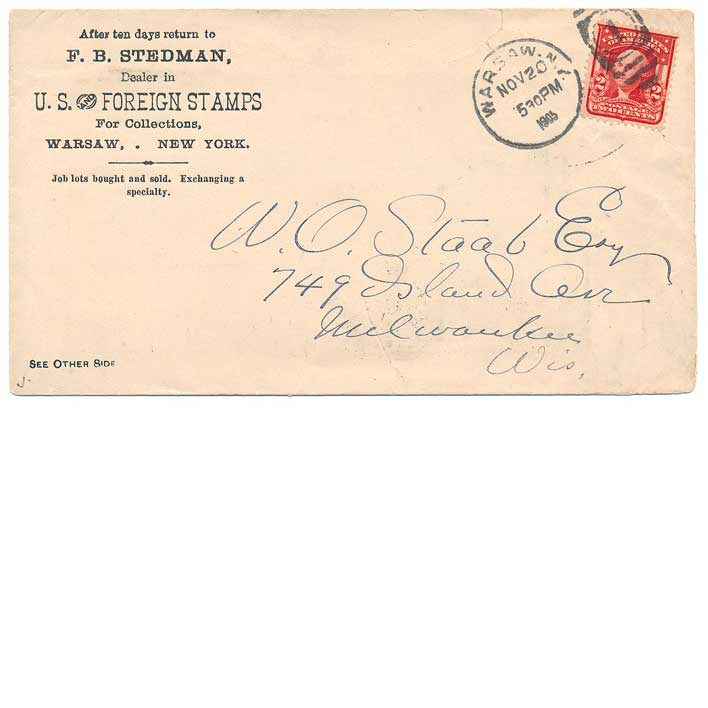 After ten days return to
F. B. STEDMAN,
Dealer in
U. S. AND FOREIGN STAMPS
For Collections,
WARSAW, . NEW YORK.
Job lots bought and sold. Exchanging a
specialty.
WARSAW. N.Y.
NOV 20
530PM
1905
UNITED STATES
OF AMERICA
2 2
POSTAGE
TWO CENTS
W. O. Staab Esq
749 Island Ave
Milwaukee
Wis,
SEE OTHER SIDE